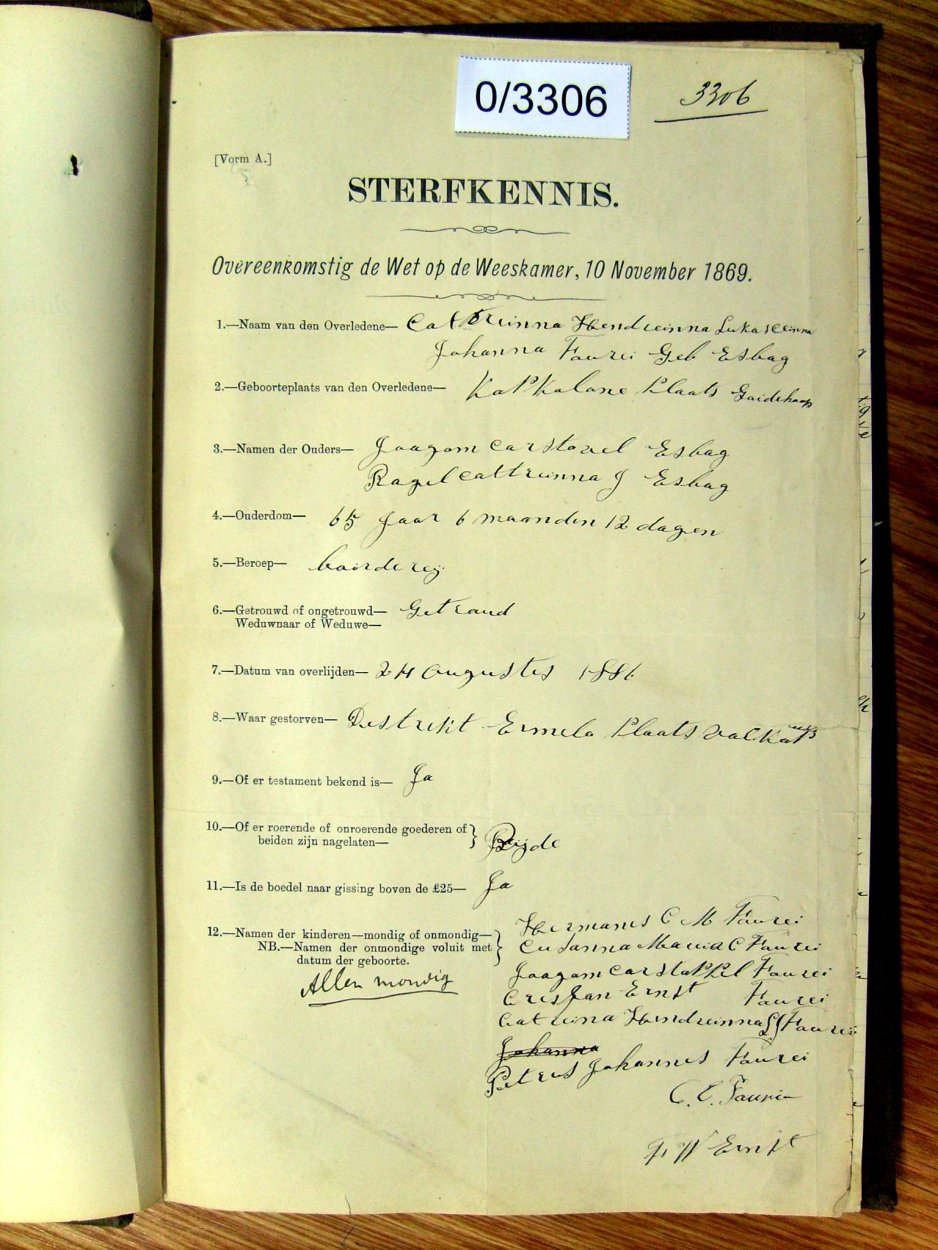 0/3306
3306
[Vorm A.]
STERFKENNIS.
Overeenkomstig de Wet op de Weeskamer, 10 November 1869.
1.—Naam van den Overledene— Cattreinna Hendreinna Lukasceinna
Johanna Faurei Geb Esbag
2.—Geboorteplaats van den Overledene— Plaats
3.—Namen der Ouders— Jaagom Carstovel Esbag
Ragel Cattreinna J Esbag
4.—Ouderdom— 65 Jaar 6 maanden 12 dagen
5.—Beroep— boirdereij
6.—Getrouwd of ongetrouwd— Getraud
Weduwnaar of Weduwe—
7.—Datum van overlijden— 24 Augustes 1886
8.—Waar gestorven— Destrikt Ermelo Plaats
9.—Of er testament bekend is— Ja
10.—Of er roerende of onroerende goederen of
beiden zijn nagelaten— Bijde
11.—Is de boedel naar gissing boven de £25— Ja
12.—Namen der kinderen—mondig of onmondig—
NB.—Namen der onmondige voluit met
datum der geboorte.
Allen mondig
Hermanes C M Faurei
Cusanna Maria C Faurei
Jaagom Carstoffel Faurei
Cresjan Ernst Faurei
Catreina Hendreinna LJ Faurei
Johanna
Petrus Johannes Faurei
C. E. Faurie
F W Ernst